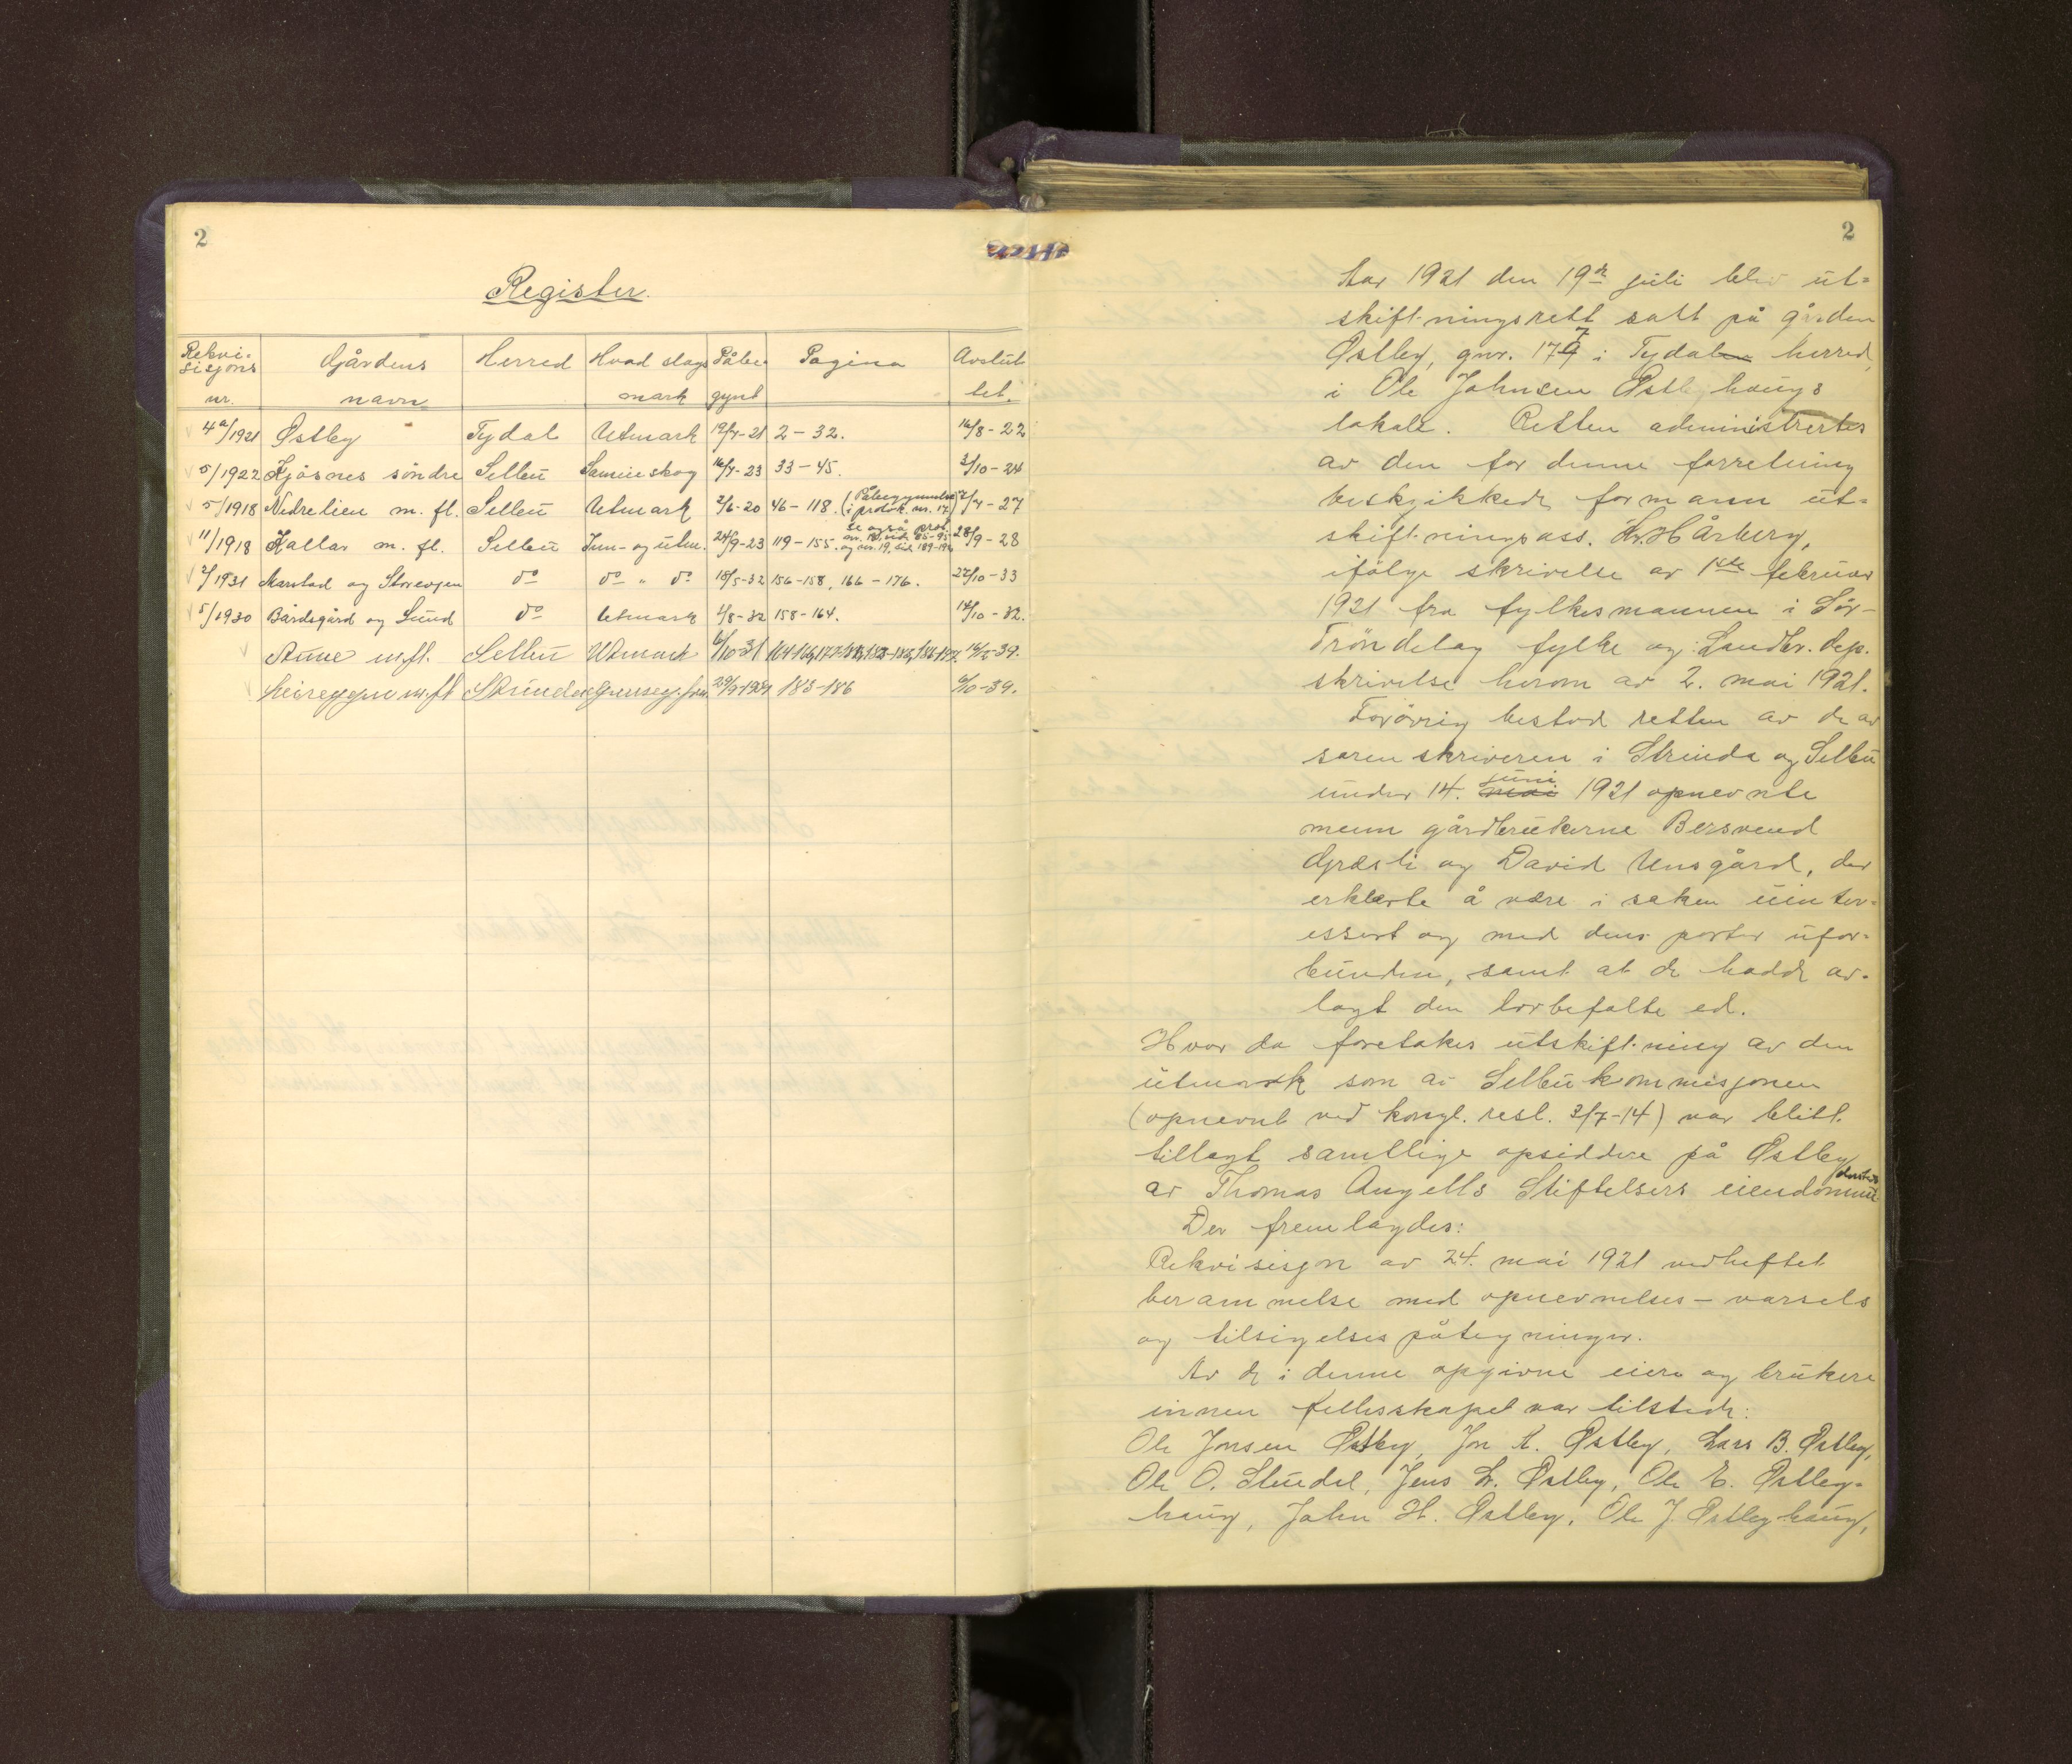 2
Register.
Rekvi-sisjons nr. Gårdens navn Herred Hvad slags mark Påbe-gynt Pagina Avslut-tet.
4a/1921 Østby Tydal Utmark 19/7-21 2-32. 16/8-22
5/1922 Kjösnes söndre Selbu Sameieskog 16/7-23 33-45. 3/10-24
5/1918 Nedrelien m. fl. Selbu Utmark 2/6-20 46-118. (Påbegynnelse i protok. nr. 17) 2/7-27
11/1918 Kallar m. fl. Selbu Inn- og utm. 24/9-23 119-155. se også prot. nr. 18, sid. 85-95 og nr. 19, sid. 189-192 28/9-28
2/1931 Marstad og Storevjen do do " do 18/5-32 156-158, 166-176. 27/10-33
5/1930 Bårdsgård og Lund do Utmark 1/8-32 158-164. 14/10-32.
Aune m.fl. Selbu Utmark 6/10-31
m.fl. Strinda 183-186 6/10-39.
2
Aar 1921 den 19de juli blev ut=
skiftningsrett satt på gården
Østby, gnr. 177 i Tydalen herred,
i Ole Johnsen Østbyhaugs
lokale. Retten administrertes
av den for denne forretning
beskikkede formann ut=
skiftningsass. Hr. H Årberg,
ifölge skrivelse av 1ste februar
1921 fra fylkesmannen i Sör-
Tröndelag fylke og Landbr. dep.
skrivelse herom av 2. mai 1921.
Forövrig bestod retten av de av
sorenskriveren i Strinda og Selbu
under 14. mai juni 1921 opnevnte
menn gårdbrukerne Bersvend
Græsli og David Unsgård, der
erklærte å være i saken uinter=
essert og med dens parter ufor=
bunden, samt at de hadde av-
lagt den lovbefalte ed.
Hvor da foretakes utskiftning av den
utmark som av Selbukommisjonen
(opnevnt ved kongl. resl. 3/7-14) var blitt
tillagt samtlige opsiddere på Østby
av Thomas Angells Stiftelsers eiendommer
Der fremlagdes:
Rekvisisjon av 24. mai 1921 vedheftet
berammelse med opnevnelses- varsels
og tilsigelsespåtegninger.
Av de i denne opgivne eiere og brukere
innen fellesskapet var tilstede:
Ole Jonsen Østby, Jon A. Østby, Lars B. Østby,
Ole O. Stuedal, Jens L. Østby, Ole E. Østby-
haug, John H. Østby, Ole J. Østbyhaug,